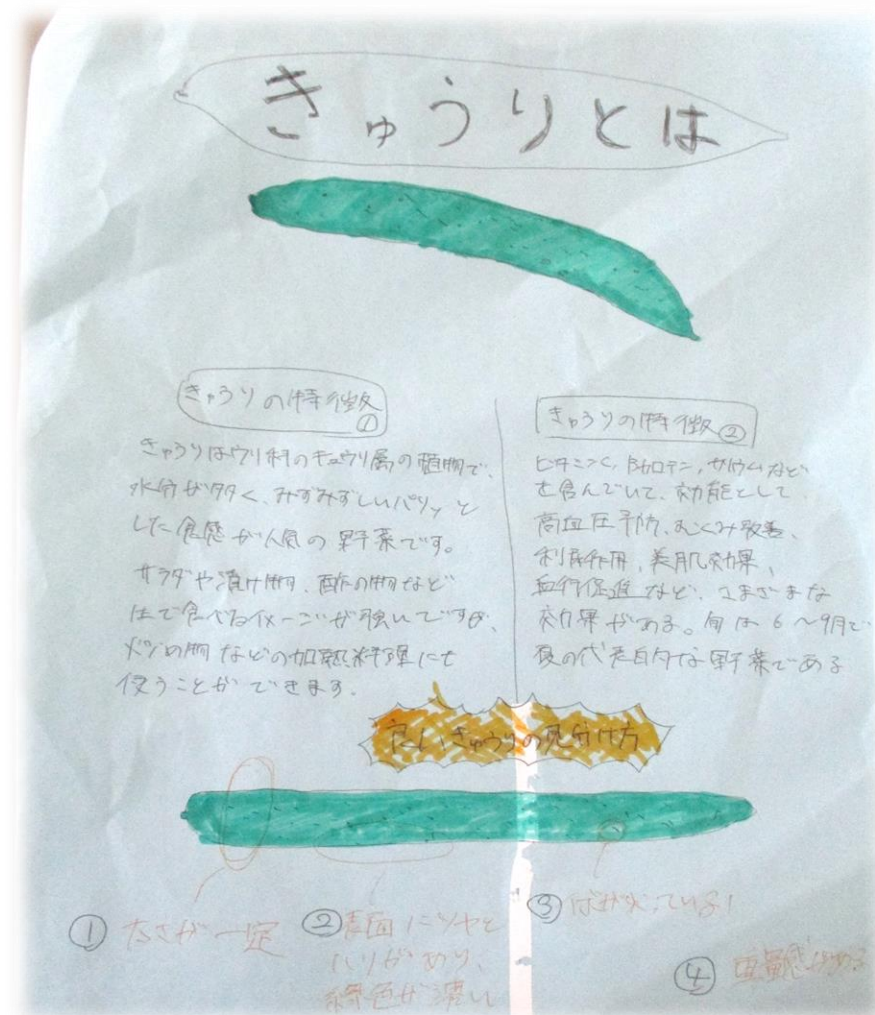 きゅうりとは
きゅうりの特徴①
きゅうりはウリ科のキュウリ属の植物で、
水分が多く、みずみずしいパリッと
した食感が人気の野菜です。
サラダや漬け物、酢の物など
生で食べるイメージが強いですが、
炒め物などの加熱料理にも
使うことができます。
きゅうりの特徴②
ビタミンC、βカロテン、カリウムなど
を含んでいて、効能として
高血圧予防、むくみ改善、
利尿作用、美肌効果、
血行促進など、さまざまな
効果がある。旬は6〜9月で
夏の代表的な野菜である
良いきゅうりの見分け方
① 太さが一定
② 表面にツヤと
ハリがあり、
緑色が濃い
③ いる!
④ 重量感がある